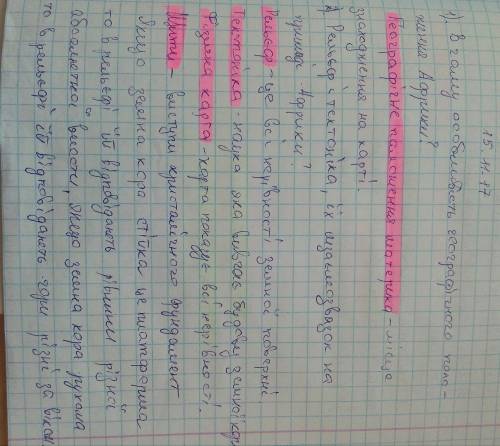 15.11.17
1). В чому особливість географічного поло-
ження Африки?
Географічне положення материка - місце
знаходження на карті.
Рельєф і тектоніка, їх взаємозвязок на
прикладі Африки?
Рельєф - це всі нерівності земної поверхні.
Тектоніка - наука яка вивчає будову земної кори
Фізична карта - карта показує всі нерівності.
Щити - виступи кристалічного фундамент
Якщо земна кора стійка це платформа
то в рельєфі їй відповідають рівнини різної
абсолютної висоти, якщо земна кора рухома
то в рельєфі їй відповідають гори різні за віком